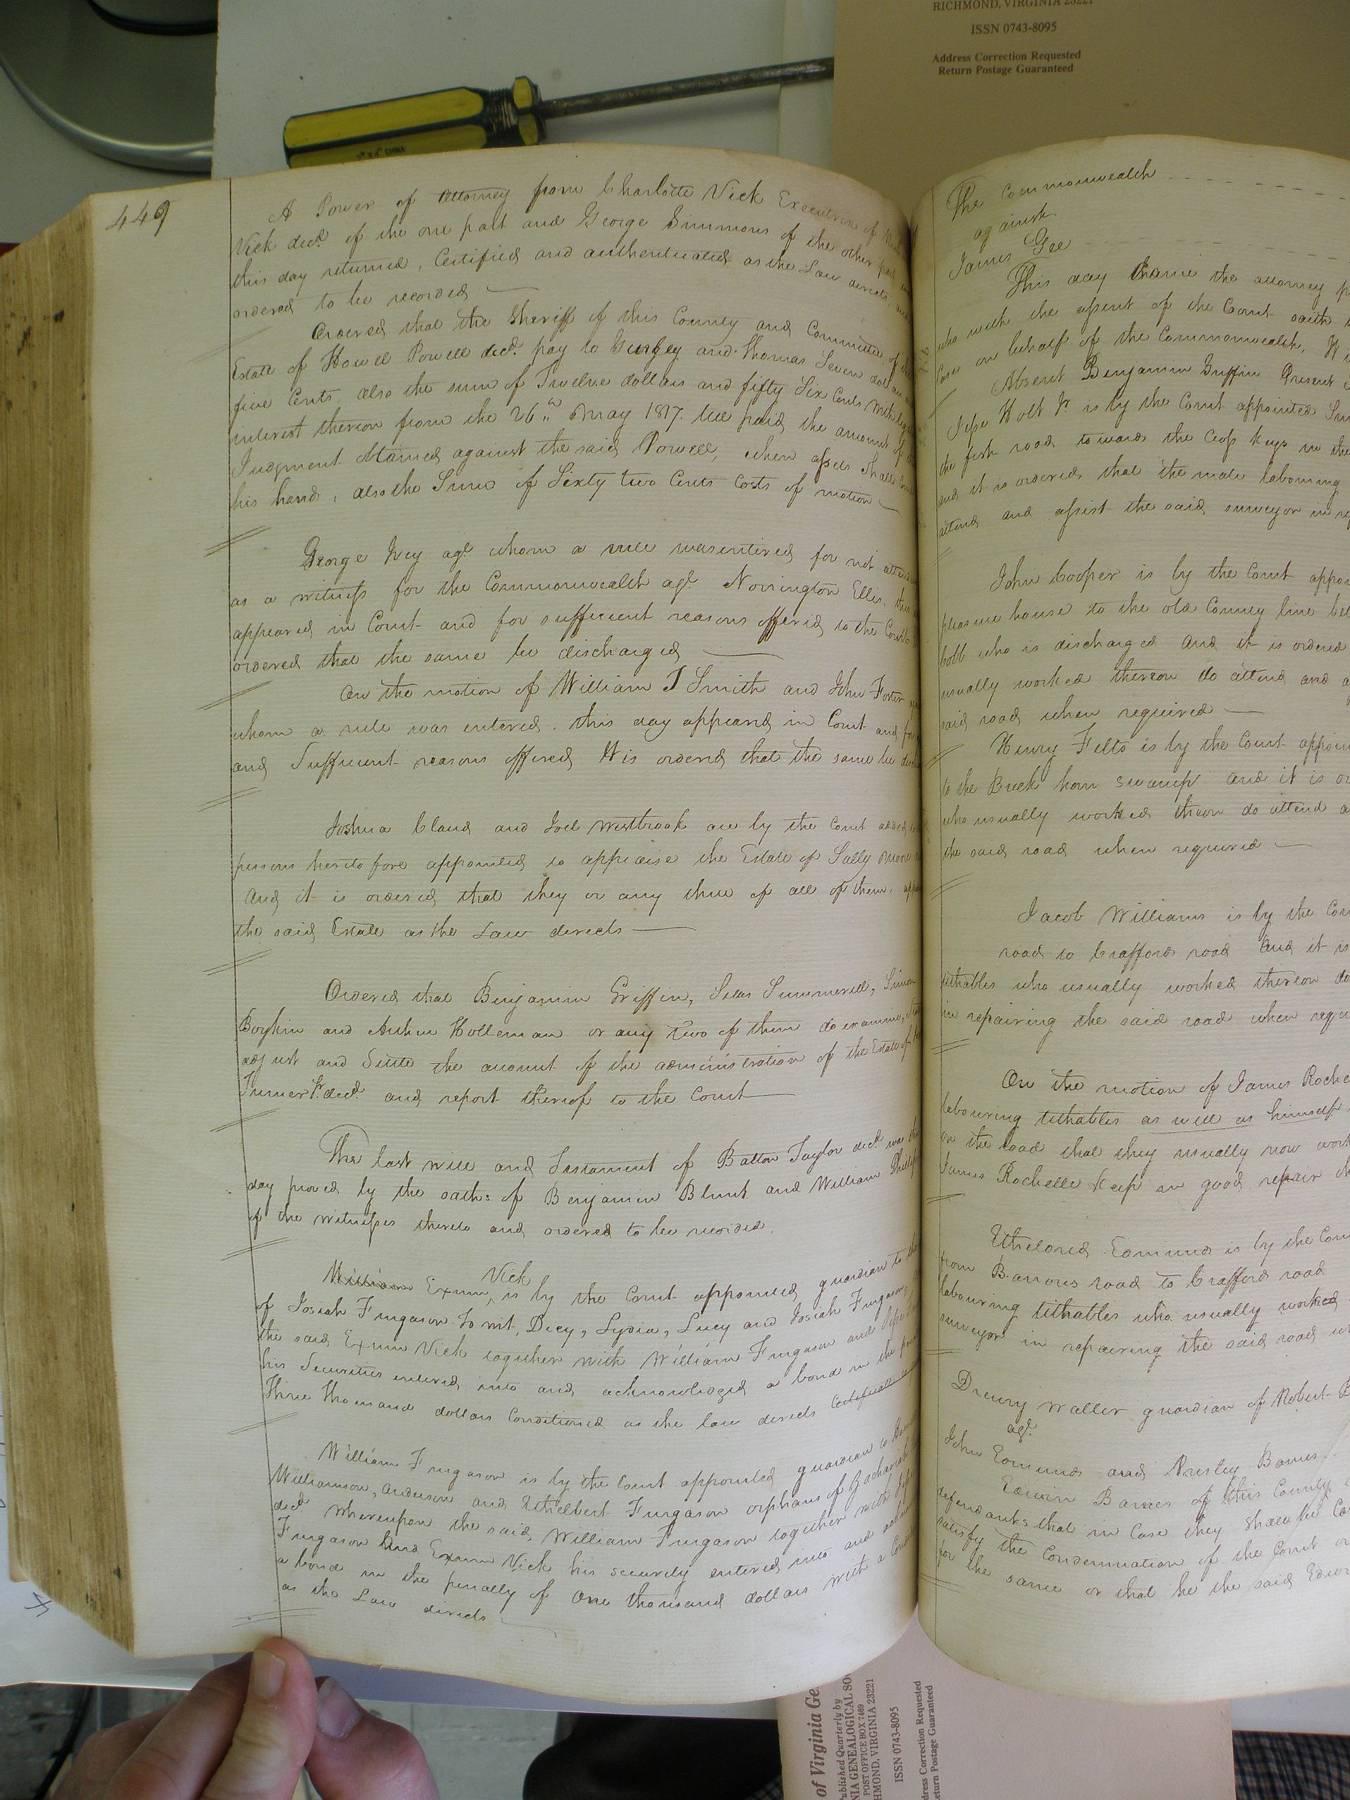 RICHMOND, VIRGINIA 23221
ISSN 0743-8095
Address Correction Requested
Return Postage Guaranteed
449
A Power of Attorney from Charlotte Vick Executrix of
Vick decd. of the one part and George Simmons of the other part
this day returned, Certified and authenticated as the Law directs
ordered to be recorded
Ordered that the Sheriff of this County and Committee of
Estate of Howell Powell decd. pay to and Thomas Seven
five Cents also the sum of Twelve dollars and fifty Six Cents with
interest thereon from the 26th May 1817. till paid the amount of
Judgment obtained against the said Powell, when assets shall
his hands, also the Sum of Sixty two Cents Costs of motion
George Ivey agt. whom a rule was entered for not
as a witness for the Commonwealth agt. Norrington Ellis,
appeared in Court and for sufficient reasons offered to the Court
ordered that the same be discharged
On the motion of William J Smith and John Foster
whom a rule was entered. this day appeared in Court and
and Sufficient reasons offered It is ordered that the same be
Joshua Claud and Joel Westbrook are by the Court added
persons heretofore appointed to appraise the Estate of Sally
And it is ordered that they or any three of all of them,
the said Estate as the Law directs
Ordered that Benjamin Griffin, Silas Summerell,
Boykin and Arthur Holleman or any two of them do examine,
adjust and Settle the account of the administration of the Estate of
Turner decd. and report thereof to the Court
The last will and Testament of Batton Taylor decd. was
day proved by the oaths of Benjamin Blunt and William
of the witnesses thereto and ordered to be recorded.
William Exum Vick, is by the Court appointed guardian to
of Josiah Furgason To wit, Dicy, Lydia, Lucy and Josiah Furgason
the said Exum Vick together with William Furgason and
his Securities entered into and acknowledged a bond in the
Three thousand dollars Conditioned as the law directs
William Furgason is by the Court appointed guardian to
Williamson, anderson and Ethelbert Furgason orphans of Zachariah
decd. whereupon the said, William Furgason together with
Furgason And Exum Vick his security entered into and
a bond in the penalty of One thousand dollars with a
as the Law directs
The Commonwealth
against
James Gee
This day Came the attorney
who with the assent of the Court saith
on behalf of the Commonwealth.
Absent Benjamin Griffin Present
Jesse Holt Jr is by the Court appointed
the fish road toward the Cross Keys in the
and it is ordered that the male labouring
attend and assist the said surveyor in
John Cooper is by the Court
pleasure house to the old County line
who is discharged And it is ordered
usually worked thereon do attend and
said road when required
Henry Felts is by the Court
to the Buck horn swamp and it is
who usually worked thereon do attend
the said road when required
Jacob Williams is by the
road to Crafford road And it is
tithables who usually worked thereon do
in repairing the said road when
On the motion of James
labouring tithables as well as himself
on the road that they usually now
James Rochelle keep in good repair
Etheldred Edmunds is by the
from Barrows road to Crafford road
labouring tithables who usually worked
surveyor in repairing the said road
Drewry Waller guardian of Robert
agt.
John Edmunds and Presley Barnes
Edwin Barnes of this County
defendants that in Case they shall be
satisfy the Condemnation of the Court
for the same or that he the said
of Virginia
Published Quarterly by
GENEALOGICAL
POST OFFICE BOX 7469
RICHMOND, VIRGINIA 23221
ISSN 0743-8095
Address Correction Requested
Return Postage Guaranteed